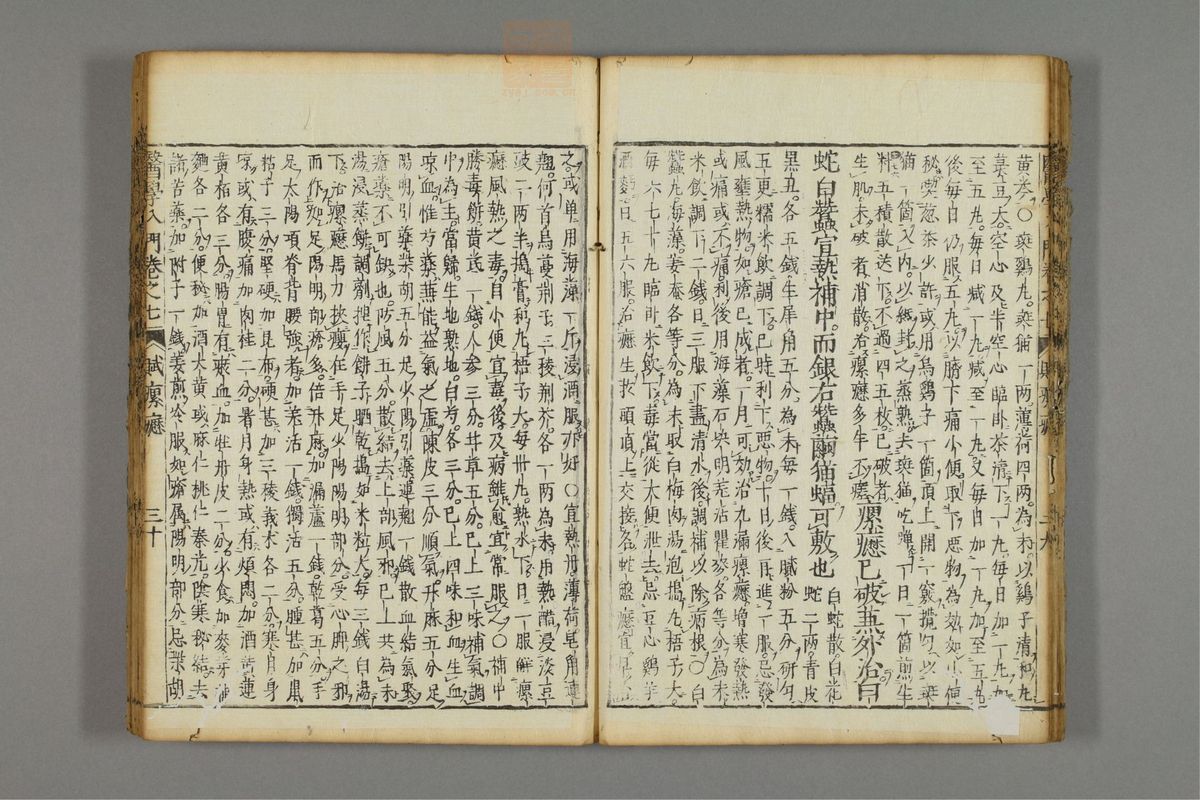 黃芩○斑鷄丸斑猫一兩薄荷四兩為末以鷄子清和丸
菉豆大空心及半空心臨卧茶清下一丸每日加一丸加
至五丸每日减一丸减至一丸又每日加一丸加至五丸
後每日仍服五丸以臍下痛小便取下惡物為効如小便
秘喫葱茶少許或用烏鷄子一箇頂上開一竅攪勻以班
猫一箇入内以紙封之蒸熟去斑猫吃蟬一日一箇煎生
料五積散送下不過四五枚已破者
生肌未破者消散治瘰癧多年不癒瘰癧已破兼外治曰
蛇白蠶宜熱補中而銀右蠶繭猫蝠可敷也白蛇散白花蛇二兩青皮
黑丑各五錢生犀角五分為末每一錢入膩粉五分研勻
五更糯米飲調下巳時利下惡物十日後再進一服忌發
風壅熱物如瘡已成者一月可効治九漏瘰癧增寒發熱
或痛或不痛利後用海藻石决明羌活瞿麥各等分為末
米飲調下二錢日三服下盡清水後調補以除病根○白
蠶丸海藻姜蚕各等分為末取白梅肉湯泡搗丸梧子大
每六七十丸臨卧米飲下毒當從大便泄去忌豆心鷄羊
酒麪日五六服治癧生於頭項上交接名蛇盤癧宜早治
之或单用海藻一斤浸酒服亦好○宜熱丹薄荷皂角連
翹何首烏蔓荆子三稜荆芥各一兩為末用熱醋浸淡豆
豉二兩半搗膏和丸梧子大每卅丸熱水下日一服解瘰
癧風熱之毒自小便宜毒後及病雖愈宜常服之○補中
勝毒餅黃芪一錢人参三分甘草五分已上三味補氣調
中為主當歸生地熟地白芍各三分已上四味和血生血
凉血惟芍藥兼能益氣之虛陳皮三分順氣升麻五分足
陽明引藥柴胡五分足少陽引藥連翹一錢散血結氣聚
瘡藥不可缺也防風五分散結去上部風邪已上共為末
湯浸蒸餅調劑捏作餅子晒乾搗如米粒大每三錢白湯
下治瘰癧馬刀挾癭在手足少陽陽明部分受心脾之邪
而作如足陽明部瘡多倍升麻加漏蘆一錢乾葛五分手
足太陽項脊背腰強者加羌活一錢獨活五分腫甚加鼠
粘子三分堅硬加昆布硬甚加三稜莪朮各二分寒月身
凉或有腹痛加肉桂二分暑月身熱或有煩悶加酒黃連
黃栢各三分腸胃有瘀血加牡丹皮二分少食加麥芽神
麯各二分便秘加酒大黃或麻仁桃仁秦艽陰寒秘結去
諸苦藥加附子一錢姜煎冷服如瘡属陽明部分忌柴胡
醫學入門卷之七 賦 瘰癧 三十